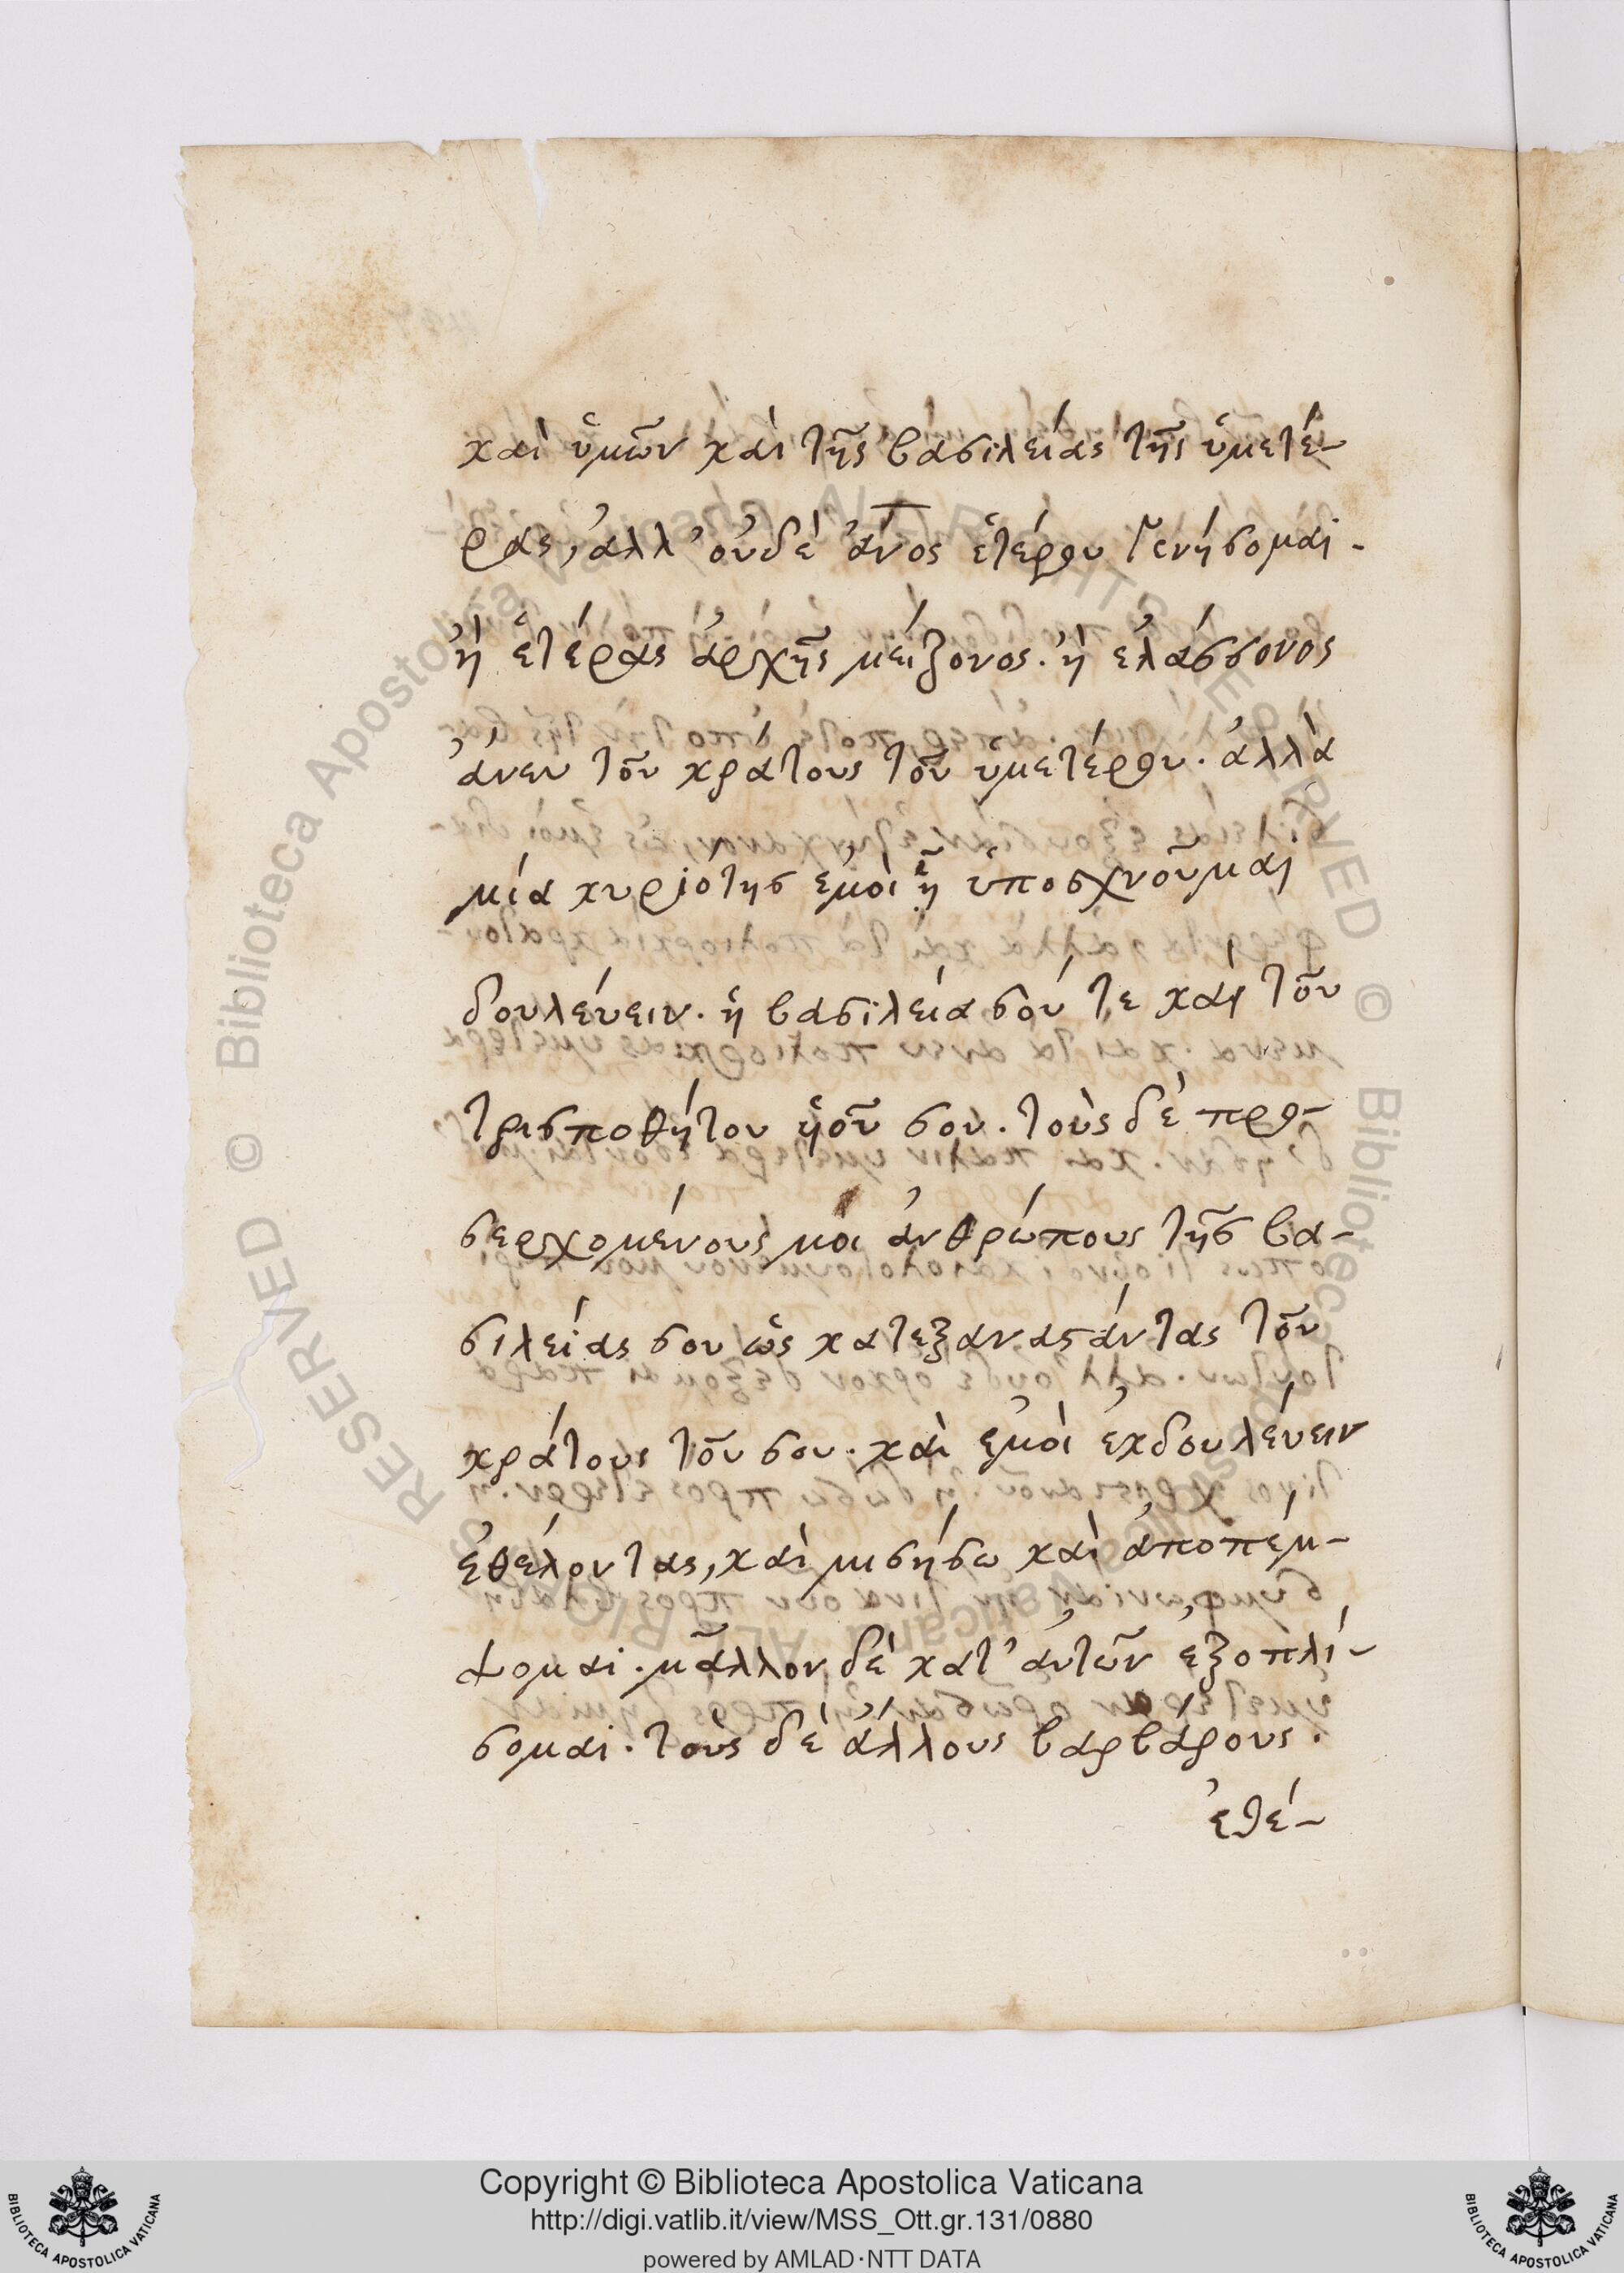 καὶ ὑμῶν καὶ τῆς βασιλείας τῆς ὑμετέ-
ρας, ἀλλ' οὐδὲ ἄνος ἑτέρου γενήσομαι.
ἢ ἑτέρας ἀρχῆς μείζονος. ἢ ἐλάσσονος
ἄνευ τοῦ κράτους τοῦ ὑμετέρου. ἀλλὰ
μία κυριότης ἐμοὶ ᾗ ὑποσχνοῦμαι
δουλεύειν. ἡ βασιλεία σού τε καὶ τοῦ
τρισποθήτου ὑοῦ σου. τοὺς δὲ προ-
σερχομένους μοι ἀνθρώπους τῆς βα-
σιλείας σου ὡς κατεξαναστάντας τοῦ
κράτους τοῦ σου. καὶ ἐμοὶ ἐκδουλεύειν
ἐθέλοντας, καὶ μισήσω καὶ ἀποπέμ-
ψομαι. μᾶλλον δὲ κατ' αὐτῶν ἐξοπλί-
σομαι. τοὺς δὲ ἄλλους βαρβάρους.
ἐθέ-
Copyright © Biblioteca Apostolica Vaticana
http://digi.vatlib.it/view/MSS_Ott.gr.131/0880
powered by AMLAD·NTT DATA
BIBLIOTECA APOSTOLICA VATICANA
BIBLIOTECA APOSTOLICA VATICANA
© Biblioteca Apostolica Vaticana ALL RIGHTS RESERVED
© Biblioteca Apostolica Vaticana ALL RIGHTS RESERVED